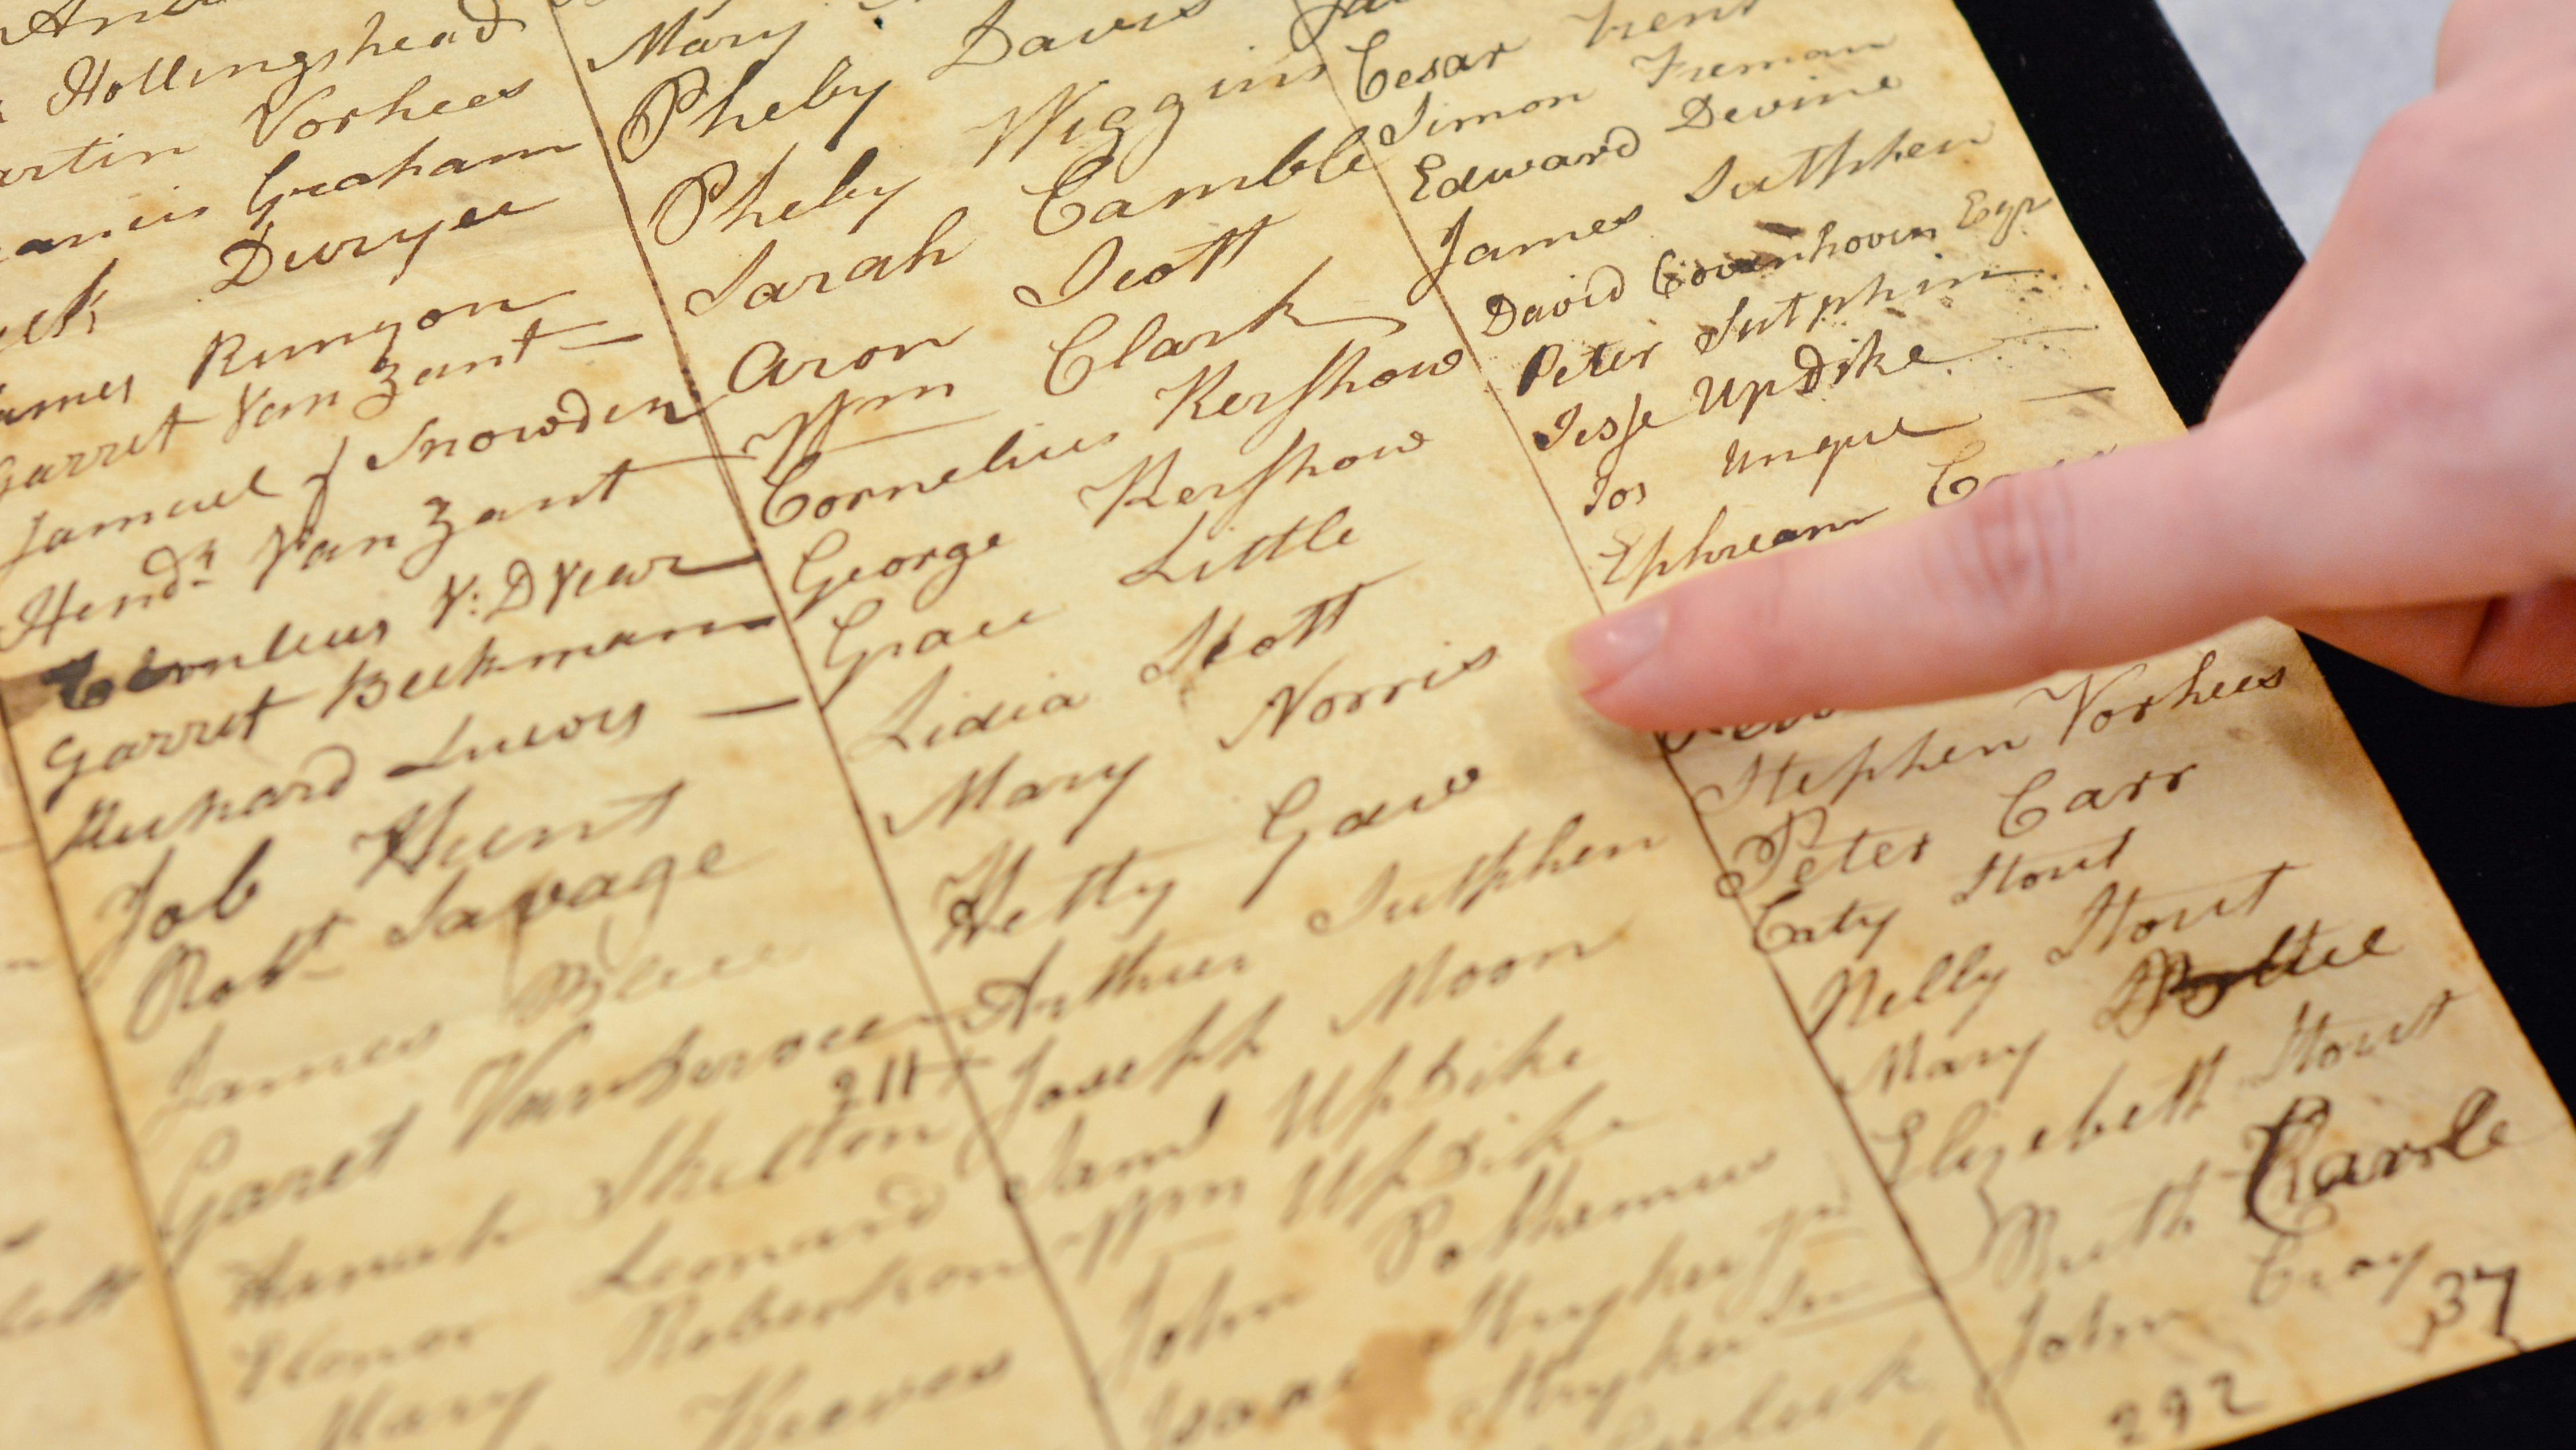 Hollingshead
Vorhees
Graham
Duryee
Runyon
Garret Van Zant
Samuel J Snowden
Hendk Van Zant
Cornleus V: D Vear
Garret Beekman
Richard Lucois
Job Hunt
Robt Savage
James Blue
Garret
Hannah Skelton
Elonor Leonard
Mary Robertson
Mary
211
Mary
Pheby Davis
Pheby Wiggins
Sarah Camble
Aron Scott
Wm Clark
Cornelius Kershow
George Kershow
Grace Little
Lidia Scott
Mary Norris
Hetty Gaw
Arthur Sutphen
Joseph Moon
Saml UpDike
Wm UpDike
John Polhemus
Isaac Stryker Jur
Stryker Sen
Cesar Trent
Simon Freman
Edward Devine
James Sutphen
David Covenhoven Eqr
Peter Sutphin
Jesse UpDike
Jos Unque
Ephream
Stephen Vorhees
Peter Carr
Caty Stout
Nelly Stout
Mary
Elizebeth Stout
Ruth Carrle
John Croy
37
292